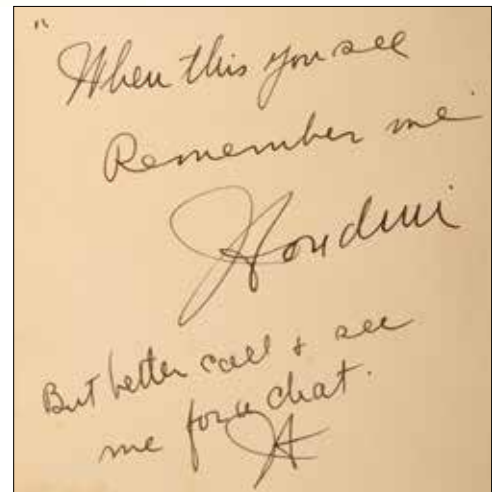 "When this you see
Remember me
Houdini
But better call & see
me for a chat.
H